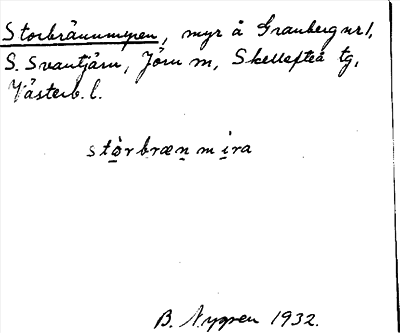 Storbrännmyren, myr å Granberg nr 1,
S. Svantjärn, Jörn sn, Skellefteå tg,
Västerb. l.
stòrbrænmira
B. Nygren 1932.